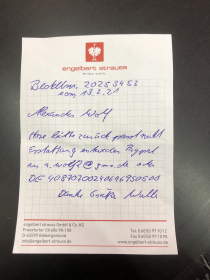 engelbert strauss
Bestellnr. 20253453
vom 13.2.21
Alexander Wolf
Hose bitte zurück passt nicht
Erstattung entweder Paypal
an a.wolf2@gmx.de oder
DE
Danke Grüße Wolf
engelbert strauss GmbH & Co. KG
Frankfurter Straße 98-108
D-63599 Biebergemünd
info@engelbert-strauss.de
Tel. 0 60 50 / 97 10 12
Fax 0 60 50 / 97 10 90
www.engelbert-strauss.de